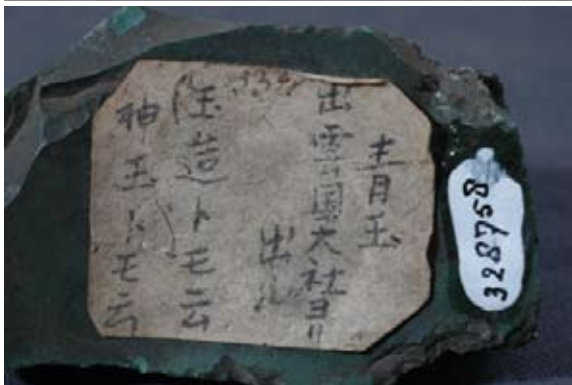 青玉
出雲国大社ヨリ
出ル
玉造トモ云
神玉トモ云
328758